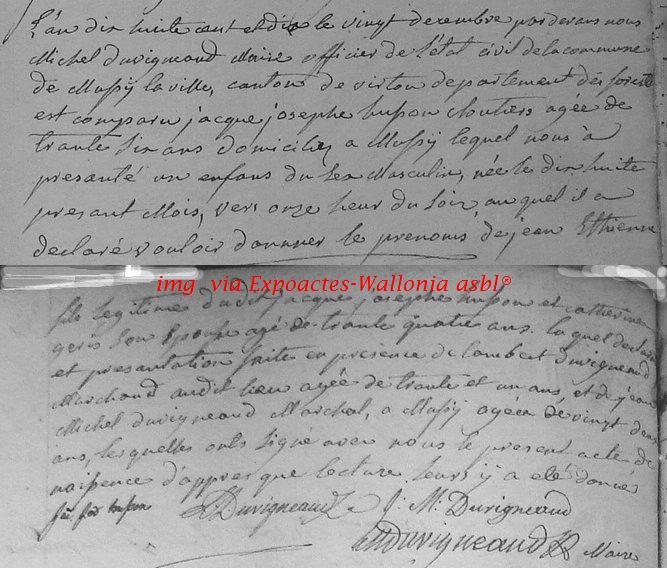 L'an dix huite cent et dix le vingt decembre par devans nous
Michel duvigneaud Maire officier de L'état civil de la commune
de Mussÿ la ville, canton de virton departement des forets
est comparu jacque josephe husson cloutiers agée de
trante six ans domicilié a Mussÿ lequel nous à
presanté un enfans du sex Masculin, née le dix huite
presant Mois, vers onze heur du soir, auquel il a
declaré vouloir donnner le prenoms de jean Ethienne
img via Expoactes-Wallonia asbl®
fils legitime dudit jacque josephe husson et catherinne
geris son Epouse agé de trante quatre ans. laquel declaration
et presantation faite en présence de lambert duvigneaud
Marchand audit lieu agée de trante et un ans, et de jean
Michel duvigneaud Marchal, a Mussÿ ageé de vingt deux
ans, lesquelles onts signé avec nous le present acte de
naissence d'appres que lecture leurs ÿ a eté donnes
husson Duvigneaud J. M. Duvigneaud
Mduvigneaud Maire